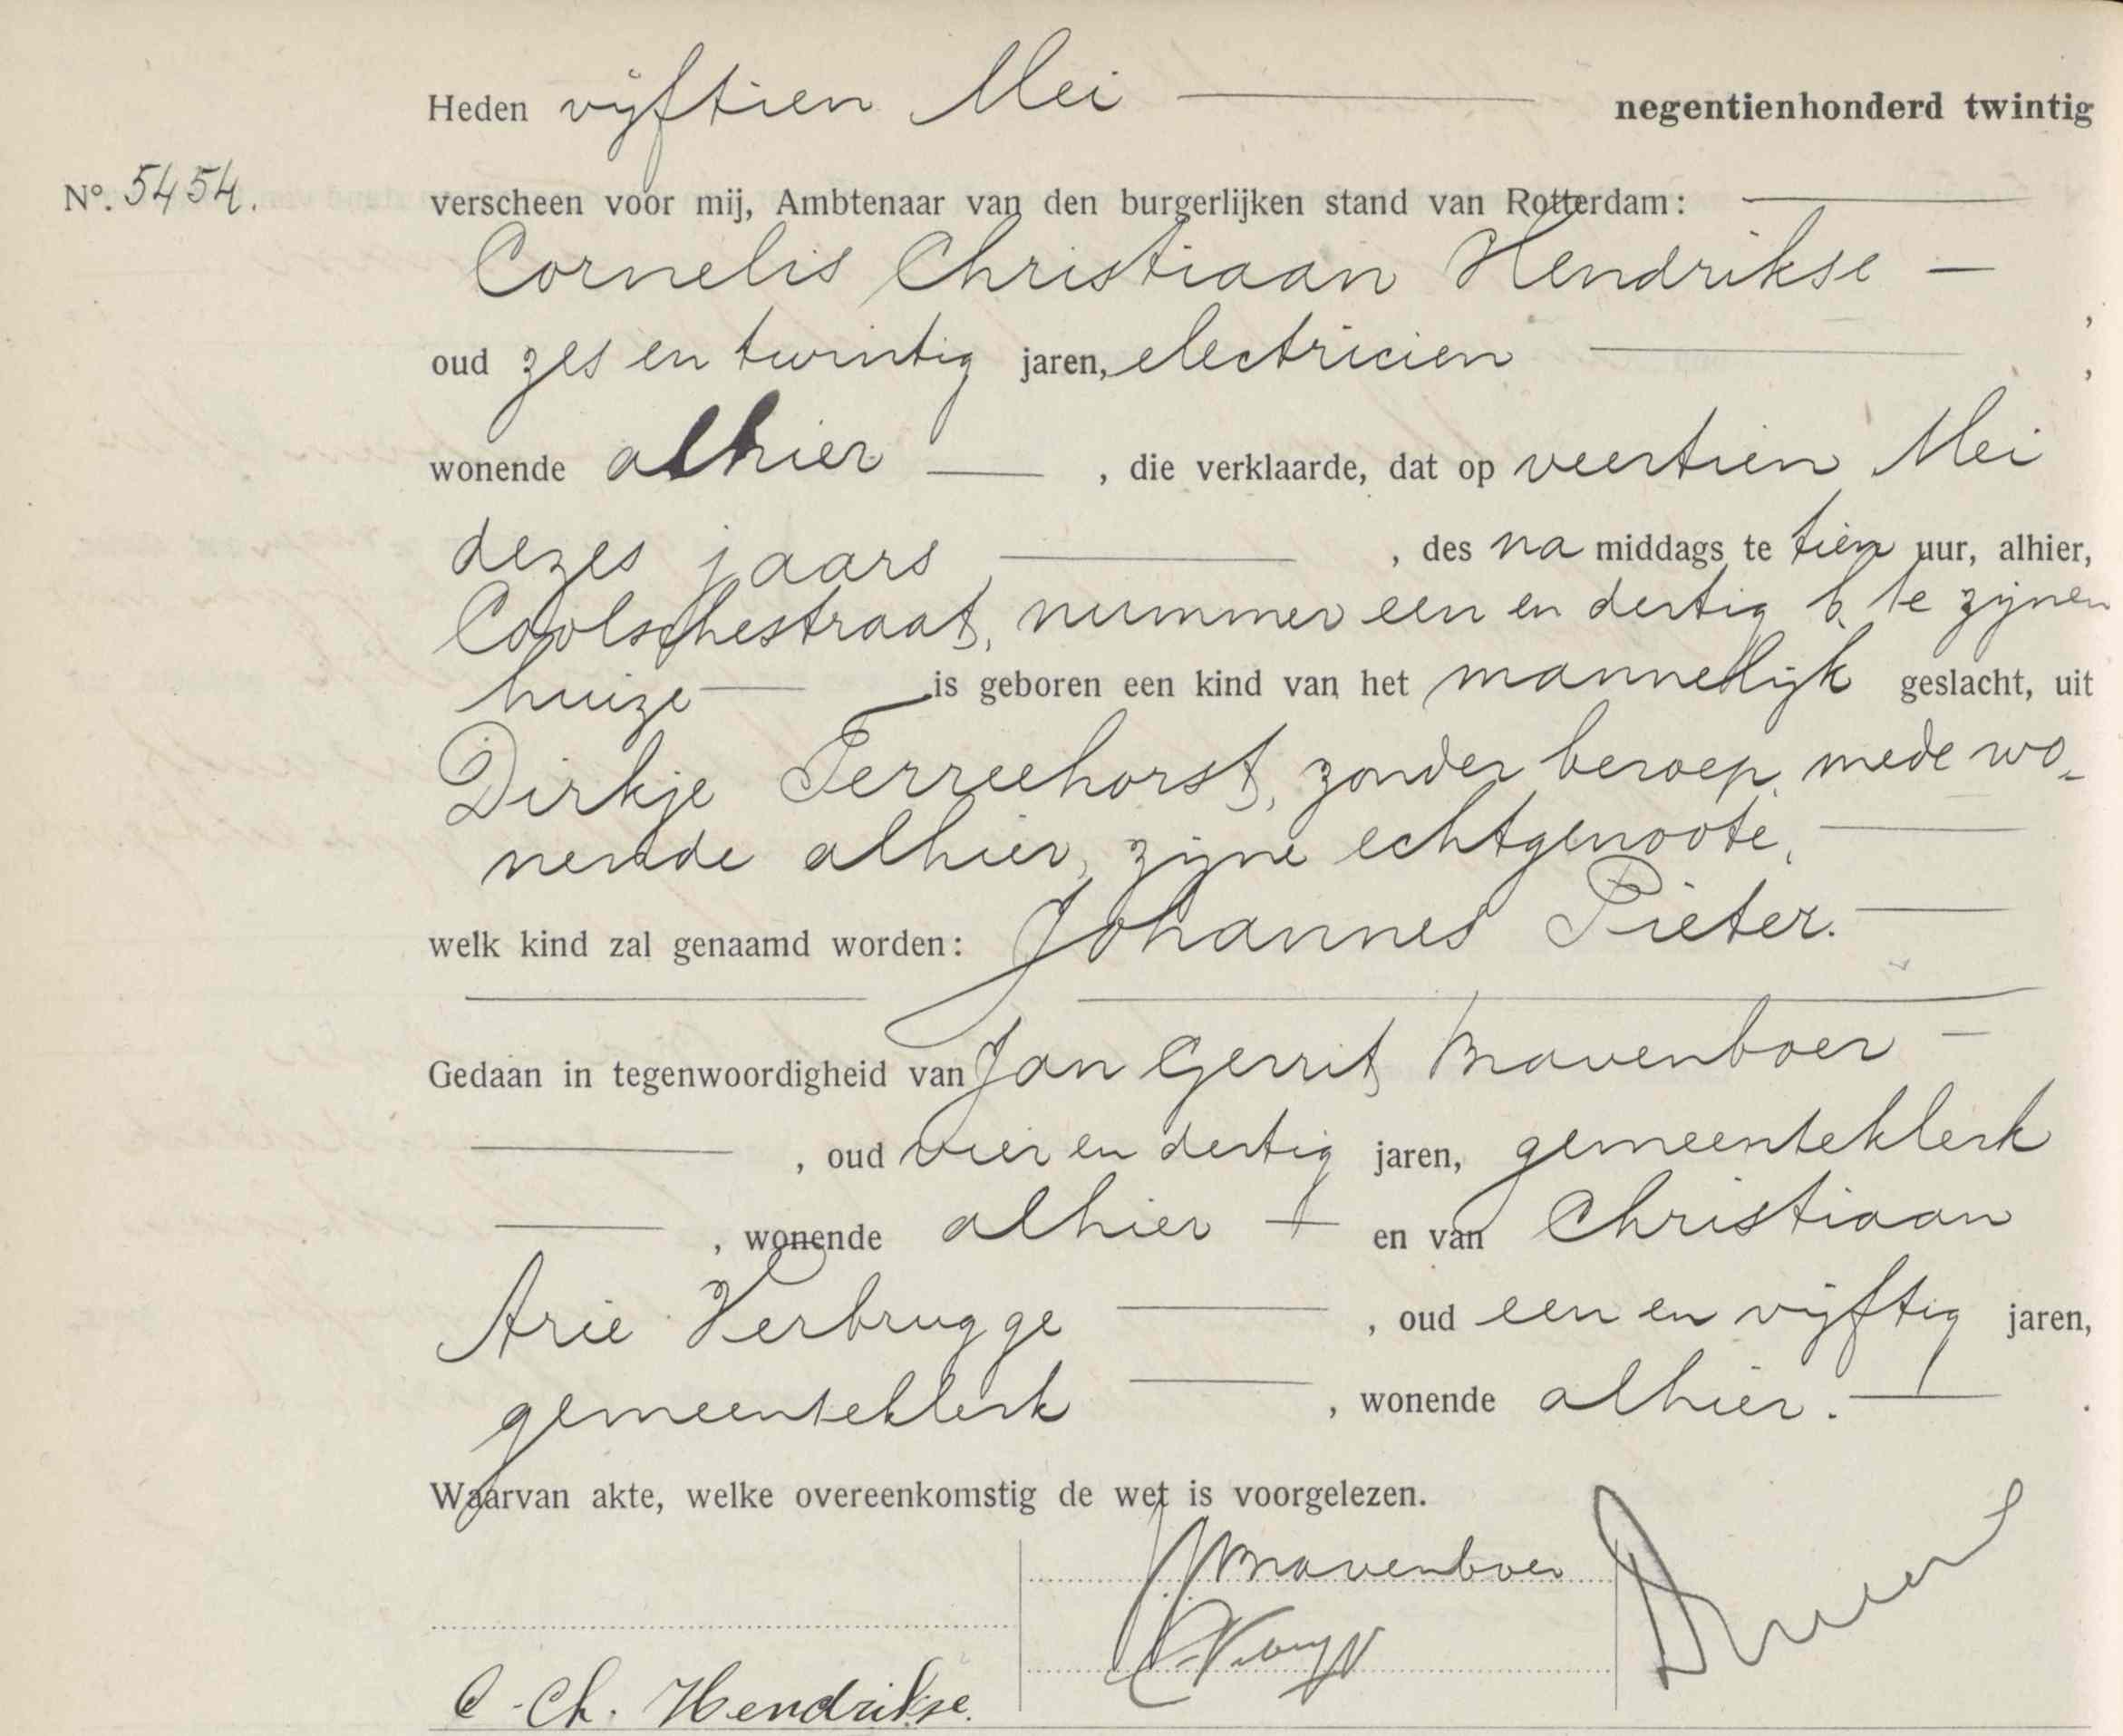 Heden vijftien Mei negentienhonderd twintig
No. 5454.
verscheen voor mij, Ambtenaar van den burgerlijken stand van Rotterdam:
Cornelis Christiaan Hendrikse
oud zes en twintig jaren, electricien
wonende alhier, die verklaarde, dat op veertien Mei
dezes jaars, des na middags te tien uur, alhier,
Coolschestraat, nummer een en dertig b, te zijnen
huize is geboren een kind van het mannelijk geslacht, uit
Dirkje Terreehorst, zonder beroep, mede wo-
nende alhier, zijne echtgenoote,
welk kind zal genaamd worden: Johannes Pieter.
Gedaan in tegenwoordigheid van Jan Gerrit Mavenboer
, oud vier en dertig jaren, gemeenteklerk
, wonende alhier en van Christiaan
Arie Verbrugge, oud een en vijftig jaren,
gemeenteklerk, wonende alhier.
Waarvan akte, welke overeenkomstig de wet is voorgelezen.
Mavenboer
C. Ch. Hendrikse.